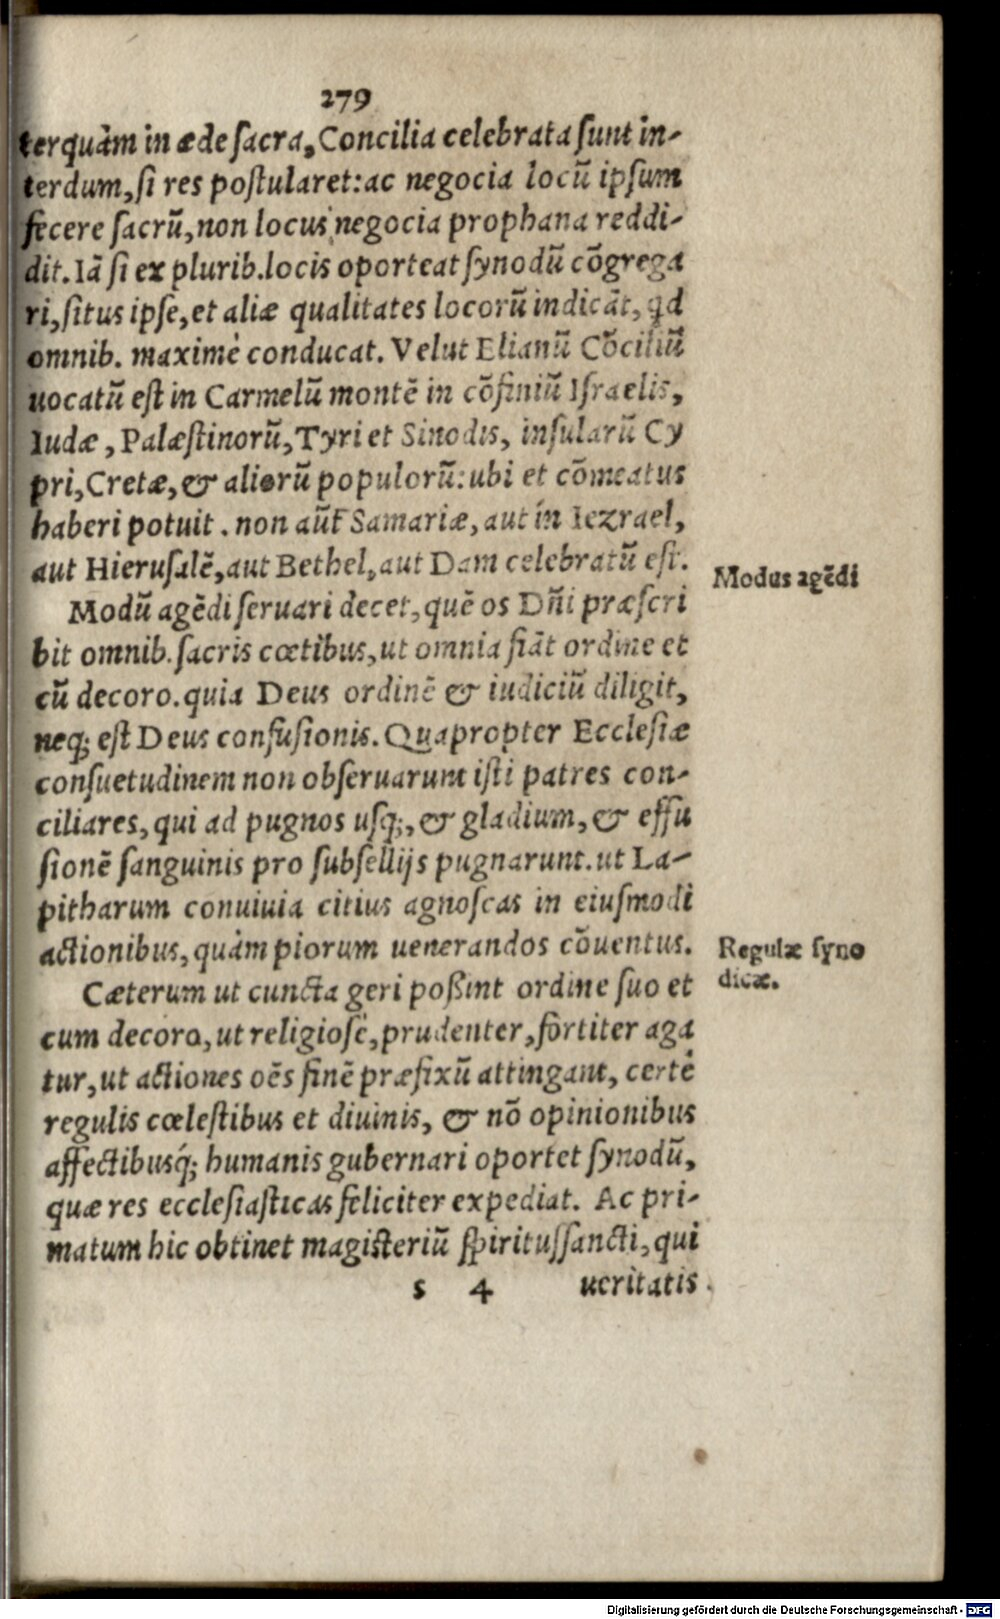 279
terquàm in æde ſacra, Concilia celebrata ſunt in-
terdum, ſi res poſtularet: ac negocia locũ ipſum
fecere ſacrũ, non locus negocia prophana reddi-
dit. Iã ſi ex plurib. locis oporteat ſynodũ cõgrega
ri, ſitus ipſe, et aliæ qualitates locorũ indicãt, qd
omnib. maximè conducat. Velut Elianũ Cõciliũ
uocatũ eſt in Carmelũ montẽ in cõfiniũ Iſraelis,
Iudæ, Palæſtinorũ, Tyri et Sinodis, inſularũ Cy
pri, Cretæ, & aliorũ populorũ: ubi et cõmeatus
haberi potuit. non aũt Samariæ, aut in Iezrael,
aut Hieruſalẽ, aut Bethel, aut Dam celebratũ eſt.
Modũ agẽdi ſeruari decet, quẽ os Dñi præſcri
bit omnib. ſacris cœtibus, ut omnia fiãt ordine et
cũ decoro. quia Deus ordinẽ & iudiciũ diligit,
neq; eſt Deus confuſionis. Quapropter Eccleſiæ
conſuetudinem non obſeruarunt iſti patres con-
ciliares, qui ad pugnos uſq;, & gladium, & effu
ſionẽ ſanguinis pro ſubſellijs pugnarunt. ut La-
pitharum conuiuia citius agnoſcas in eiuſmodi
actionibus, quàm piorum uenerandos cõuentus.
Cæterum ut cuncta geri poßint ordine ſuo et
cum decoro, ut religioſè, prudenter, fortiter aga
tur, ut actiones oẽs finẽ præfixũ attingant, certè
regulis cœleſtibus et diuinis, & nõ opinionibus
affectibusq́; humanis gubernari oportet ſynodũ,
quæ res eccleſiaſticas feliciter expediat. Ac pri-
matum hic obtinet magiſteriũ ſpirituſſancti, qui
s 4 ueritatis
Modus agẽdi
Regulæ ſyno
dicæ.
Digitalisierung gefördert durch die Deutsche Forschungsgemeinschaft - DFG